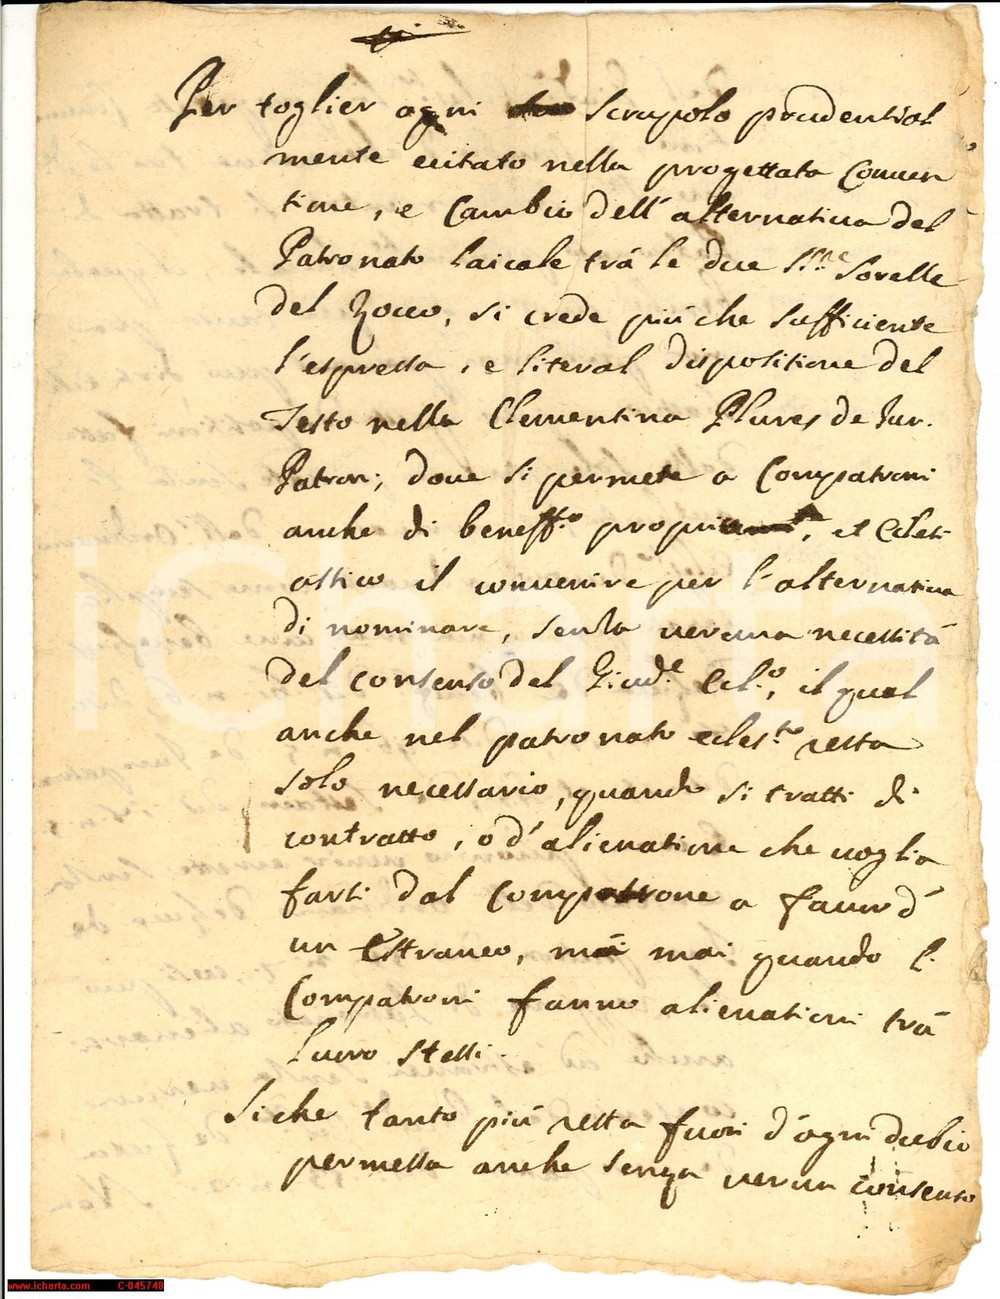 Per toglier ogni scrupolo prudential
mente ecitato nella progettata Conuen
tione, e Cambio dell'alternatiua del
Patronato laicale trà le due S.me Sorelle
del Zocco, si crede più che sufficiente
l'espressa, e literal dispositione del
Testo nella Clementina Plures de Iur.
Patron; doue si permete a Compatroni
anche di beneff.o proprio, et Eclesi
astico il conuenire per l'alternatiua
di nominare, senza ueruna necessità
del consenso del Giud.e Ecl.o, il qual
anche nel patronato eclest.co resta
solo necessario, quando si tratti di
contratto, o d'alienatione che uoglia
farsi dal Compatrone a fauor d'
un Estraneo, mà mai quando l.
Compatroni fanno alienationi trà
luoro stessi.
Siche tanto più resta fuori d'ogni dubio
permessa anche senza uerun consenso
iCharta
www.icharta.com C-045748